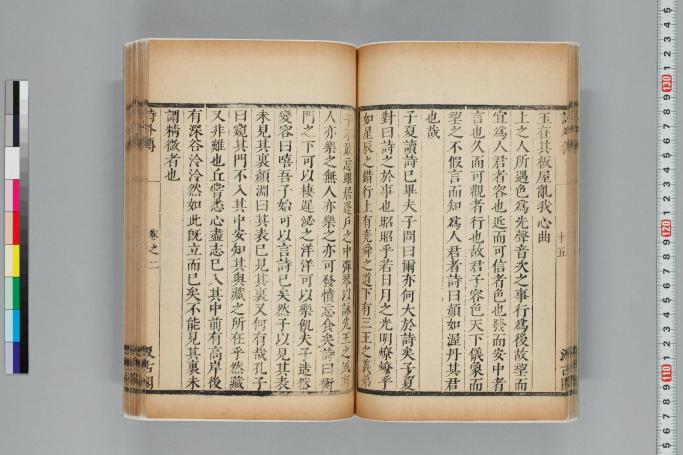 玉在其板屋亂我心曲
上之人所遇色爲先聲音次之事行爲後故望而
宜爲人君者容也近而可信者色也發而安中者
言也久而可觀者行也故君子容色天下儀象而
望之不假言而知爲人君者詩曰顔如渥丹其君
也哉
子夏讀詩已畢夫子問曰爾亦何大於詩矣子夏
對曰詩之於事也昭昭乎若日月之光明燎燎乎
如星辰之錯行上有堯舜之道下有三王之義弟
子不敢忘雖居蓬戶之中彈琴以詠先王之風有
人亦樂之無人亦樂之亦可發憤忘食矣詩曰衡
門之下可以棲遲泌之洋洋可以樂飢夫子造然
變容曰嘻吾子始可以言詩已矣然子以見其表
未見其裏顔淵曰其表已見其裏又何有哉孔子
曰窺其門不入其中安知其奥藏之所在乎然藏
又非難也丘嘗悉心盡志已入其中前有高岸後
有深谷泠泠然如此既立而已矣不能見其裏未
謂精微者也
詩外傳
卷之二
汲古閣
十五